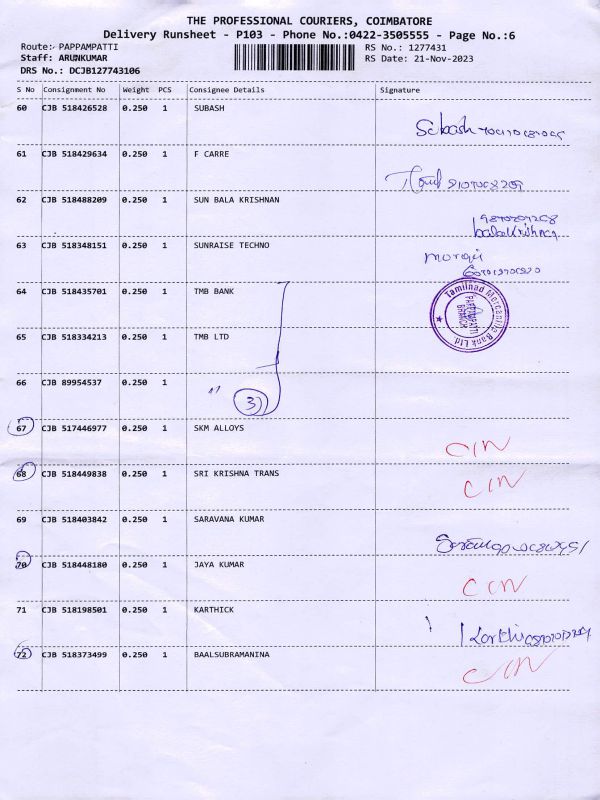 THE PROFESSIONAL COURIERS, COIMBATORE
Delivery Runsheet - P103 - Phone No.:0422-3505555 - Page No.:6
Route: PAPPAMPATTI RS No.: 1277431
Staff: ARUNKUMAR RS Date: 21-Nov-2023
DRS No.: DCJB127743106
S No Consignment No Weight PCS Consignee Details Signature
60 CJB 518426528 0.250 1 SUBASH
Subash
61 CJB 518429634 0.250 1 F CARRE
62 CJB 518488209 0.250 1 SUN BALA KRISHNAN
balakrishnan
63 CJB 518348151 0.250 1 SUNRAISE TECHNO
64 CJB 518435701 0.250 1 TMB BANK
Tamilnad Mercantile Bank Ltd
PAPPAMPATTI
BRANCH
65 CJB 518334213 0.250 1 TMB LTD
66 CJB 89954537 0.250 1 " 3
67 CJB 517446977 0.250 1 SKM ALLOYS
CIN
68 CJB 518449838 0.250 1 SRI KRISHNA TRANS
CIN
69 CJB 518403842 0.250 1 SARAVANA KUMAR
70 CJB 518448180 0.250 1 JAYA KUMAR
CIN
71 CJB 518198501 0.250 1 KARTHICK
72 CJB 518373499 0.250 1 BAALSUBRAMANINA
CIN